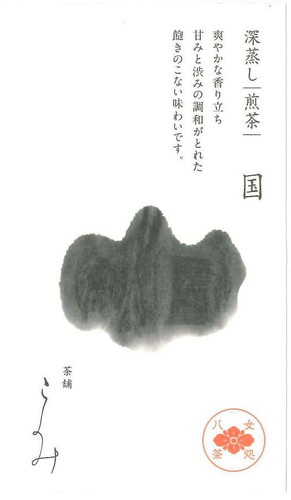 深蒸し｜煎茶｜ 国
爽やかな香り立ち
甘みと渋みの調和がとれた
飽きのこない味わいです。
茶舗
このみ
八女茶処